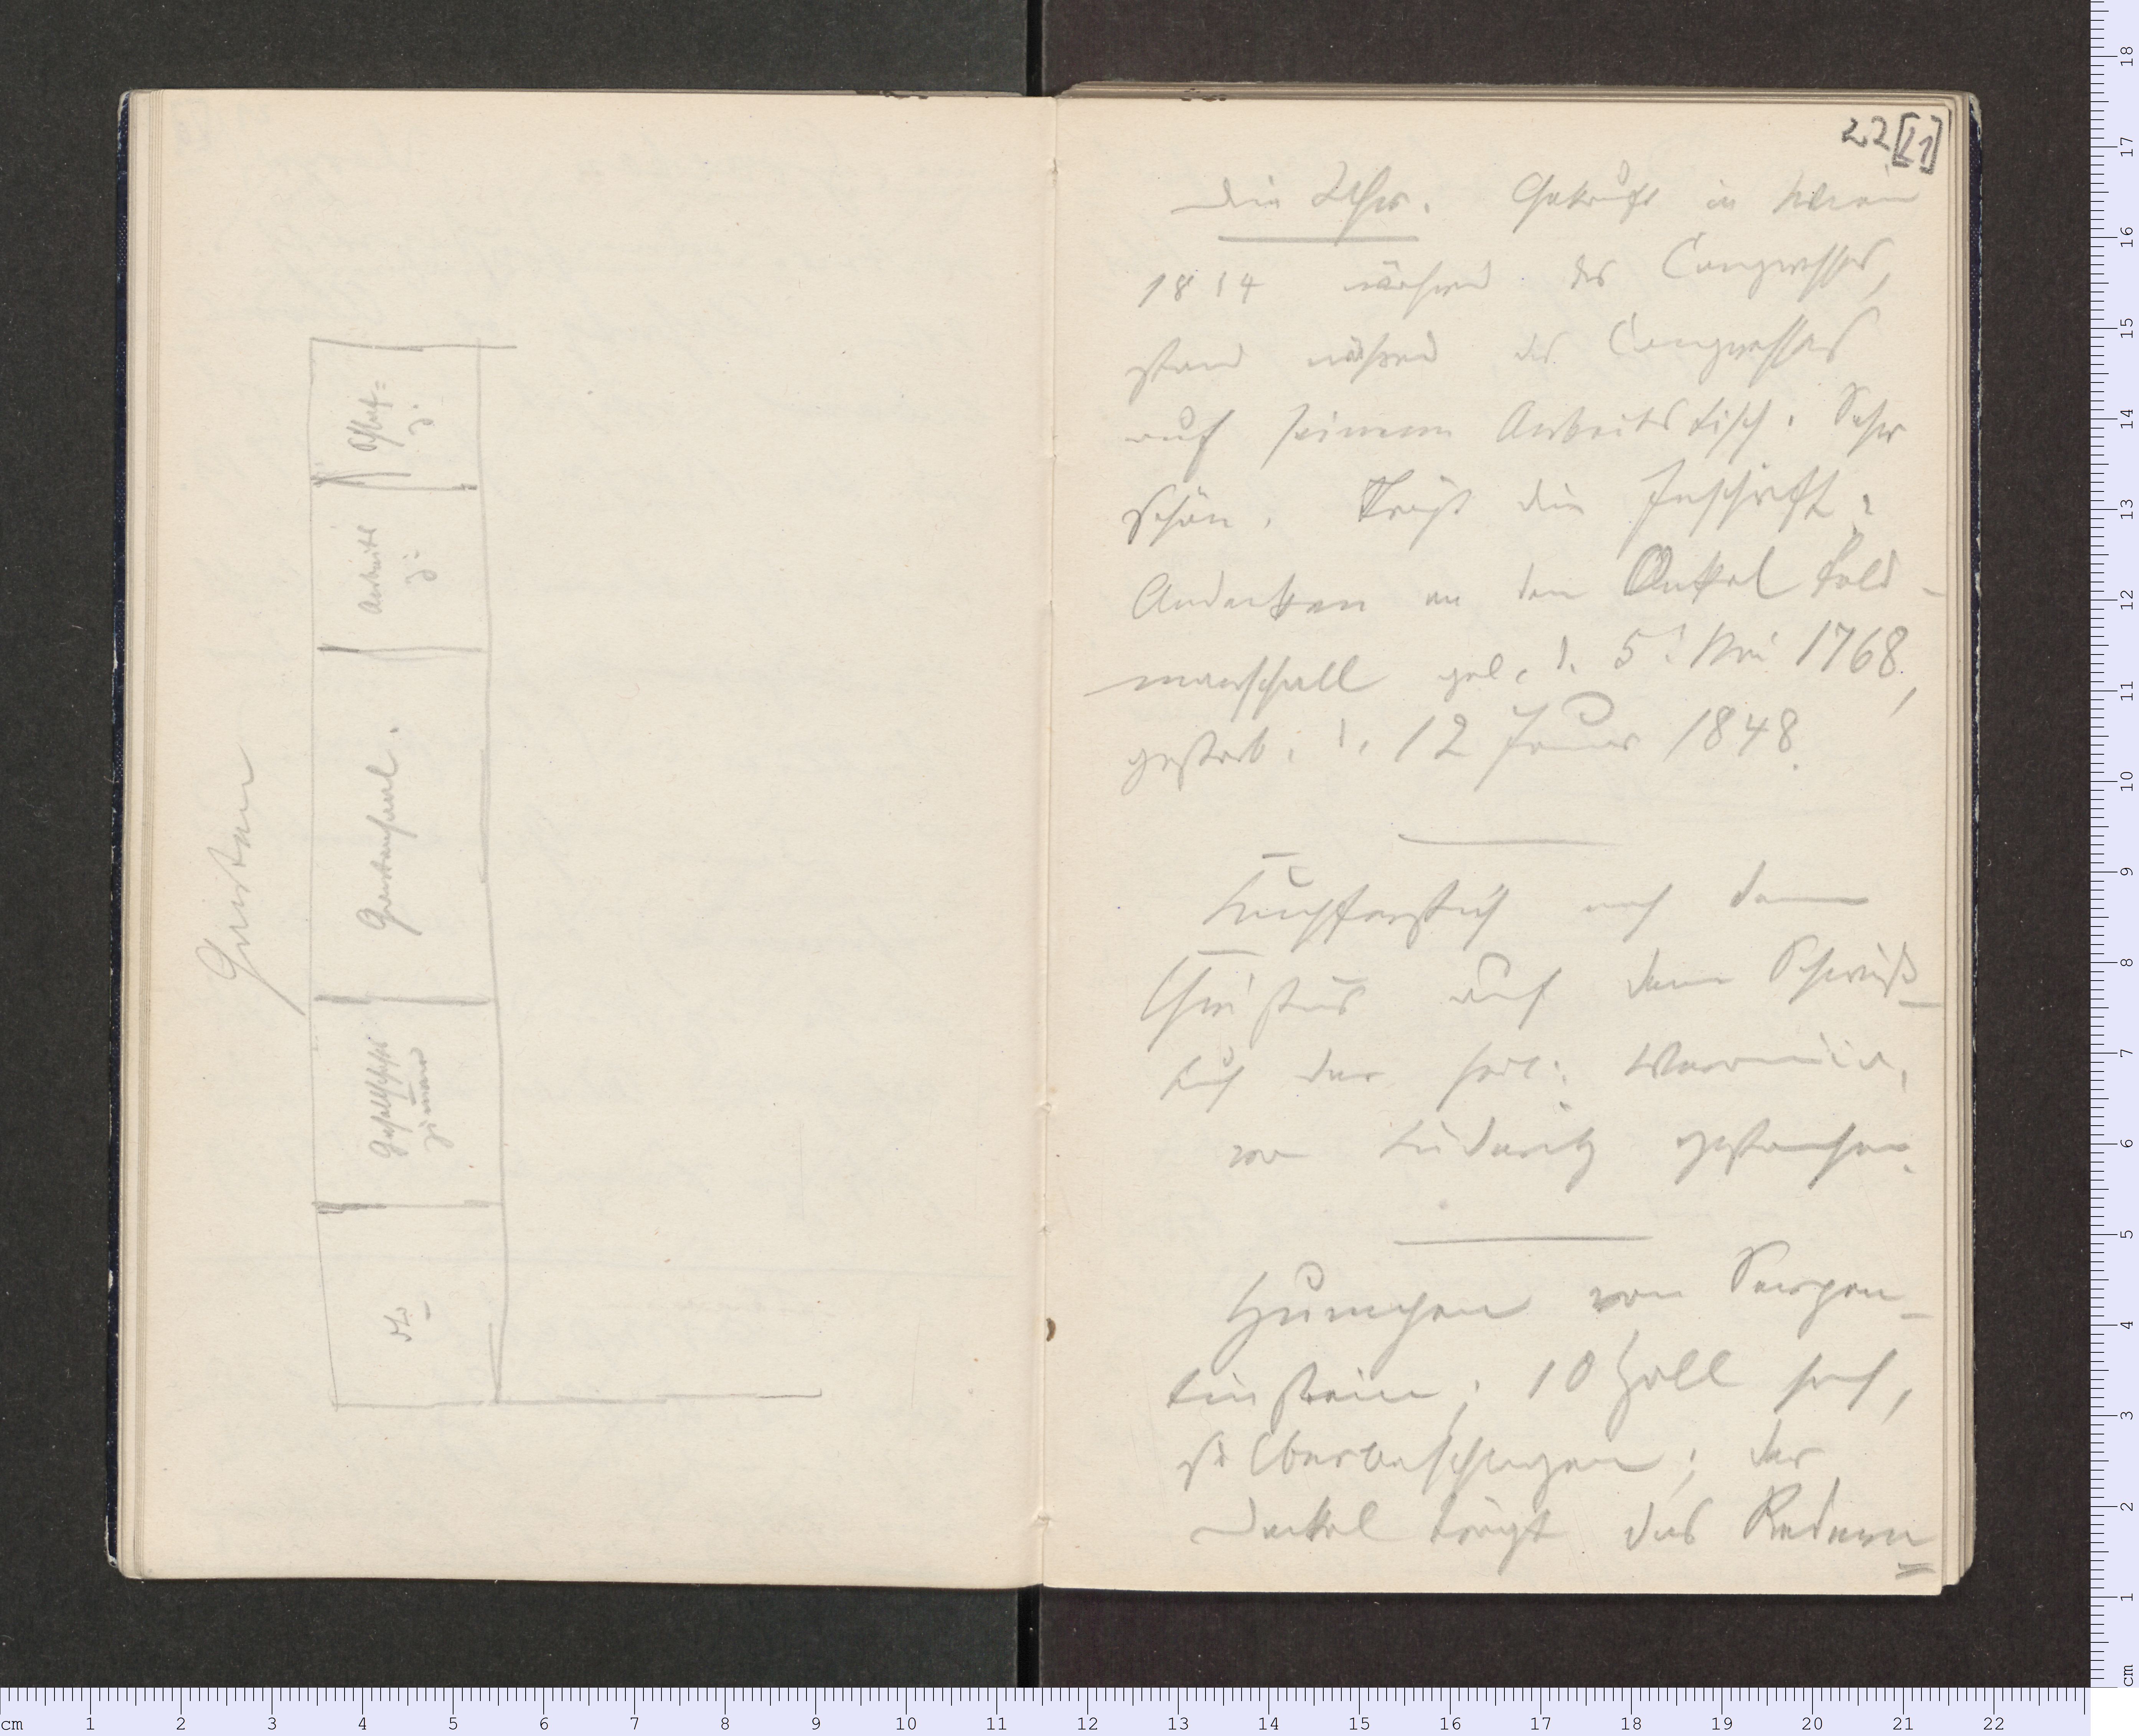 Garten
Schlaf=
z.
Arbeits
z.
Gartensaal.
Gesellschafts
zimmer
22[21]
Die Uhr. Gekauft in Wien
1814 während des Congresses,
stand während des Congresses
auf seinem Arbeitstisch. Sehr
schön. Trägt die Inschrift:
Andenken an den Onkel Feld-
marschall geb. d. 5. Mai 1768,
gestorb. d. 12 Januar 1848.
Kupferstich nach dem
Christus auf dem Schweiß-
tuch der heil: Veronica,
von Lüderitz gestochen.
Humpen von Serpen-
tinstein; 10 Zoll hoch,
silberbeschlagen; der
Deckel trägt das Redern